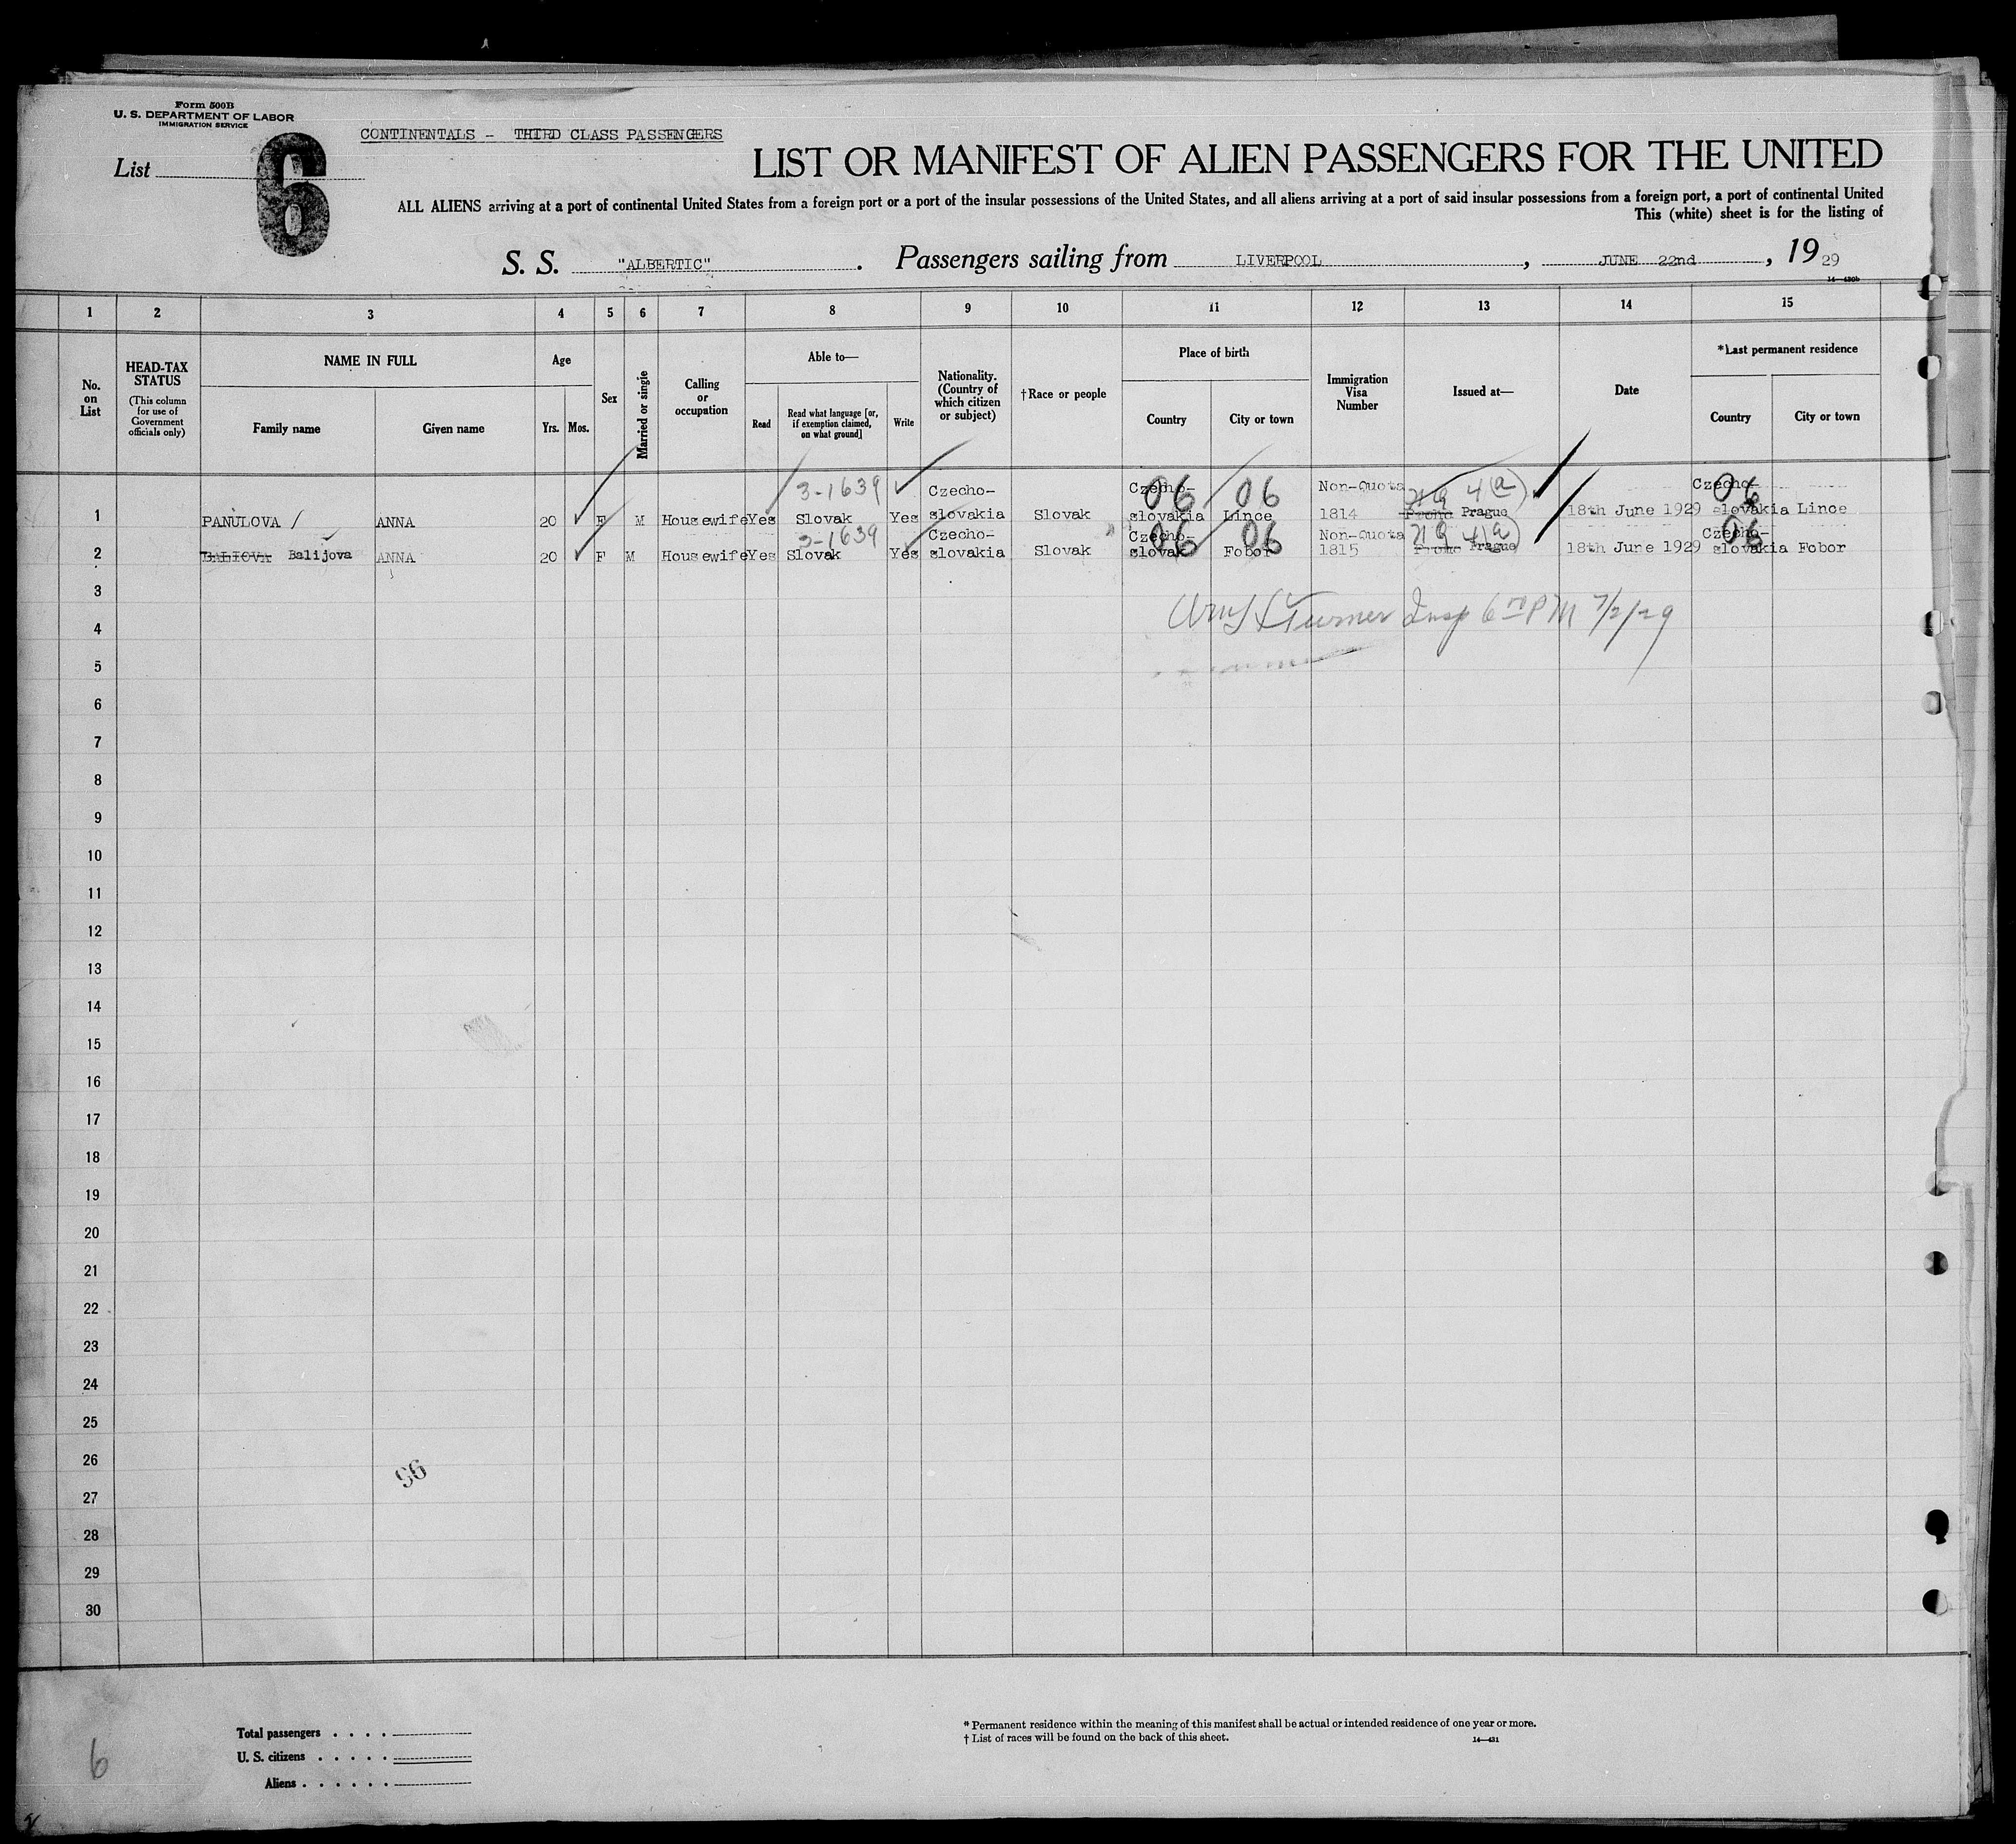 Form 500B
U. S. DEPARTMENT OF LABOR
IMMIGRATION SERVICE
CONTINENTALS - THIRD CLASS PASSENGERS
List
6
LIST OR MANIFEST OF ALIEN PASSENGERS FOR THE UNITED
ALL ALIENS arriving at a port of continental United States from a foreign port or a port of the insular possessions of the United States, and all aliens arriving at a port of said insular possessions from a foreign port, a port of continental United
This (white) sheet is for the listing of
S. S. "ALBERTIC". Passengers sailing from LIVERPOOL, JUNE 22nd, 1929
14—430b
1 2 3 4 5 6 7 8 9 10 11 12 13 14 15
No. on List
HEAD-TAX STATUS
(This column for use of Government officials only)
NAME IN FULL
Family name
Given name
Age
Yrs. Mos.
Sex
Married or single
Calling or occupation
Able to—
Read
Read what language [or, if exemption claimed, on what ground]
Write
Nationality. (Country of which citizen or subject)
†Race or people
Place of birth
Country
City or town
Immigration Visa Number
Issued at—
Date
*Last permanent residence
Country
City or town
3-1639 Czecho- Czecho- 06 06 Non-Quota 4(a) Czecho- 06
1 PANULOVA / ANNA 20 F M Housewife Yes Slovak Yes slovakia Slovak slovakia Lince 1814 Prague 18th June 1929 slovakia Lince
3-1639 Czecho- Czecho- 06 06 Non-Quota 4(a) Czecho- 06
2 BALIOVA Balijova ANNA 20 F M Housewife Yes Slovak Yes slovakia Slovak slovak Fobor 1815 Prague 18th June 1929 slovakia Fobor
3
Turner Insp 6 PM 7/2/29
4
5
6
7
8
9
10
11
12
13
14
15
16
17
18
19
20
21
22
23
24
25
26
96
27
28
29
30
Total passengers . . . .
U. S. citizens . . . . .
Aliens . . . . . .
* Permanent residence within the meaning of this manifest shall be actual or intended residence of one year or more.
† List of races will be found on the back of this sheet.
14—431
6